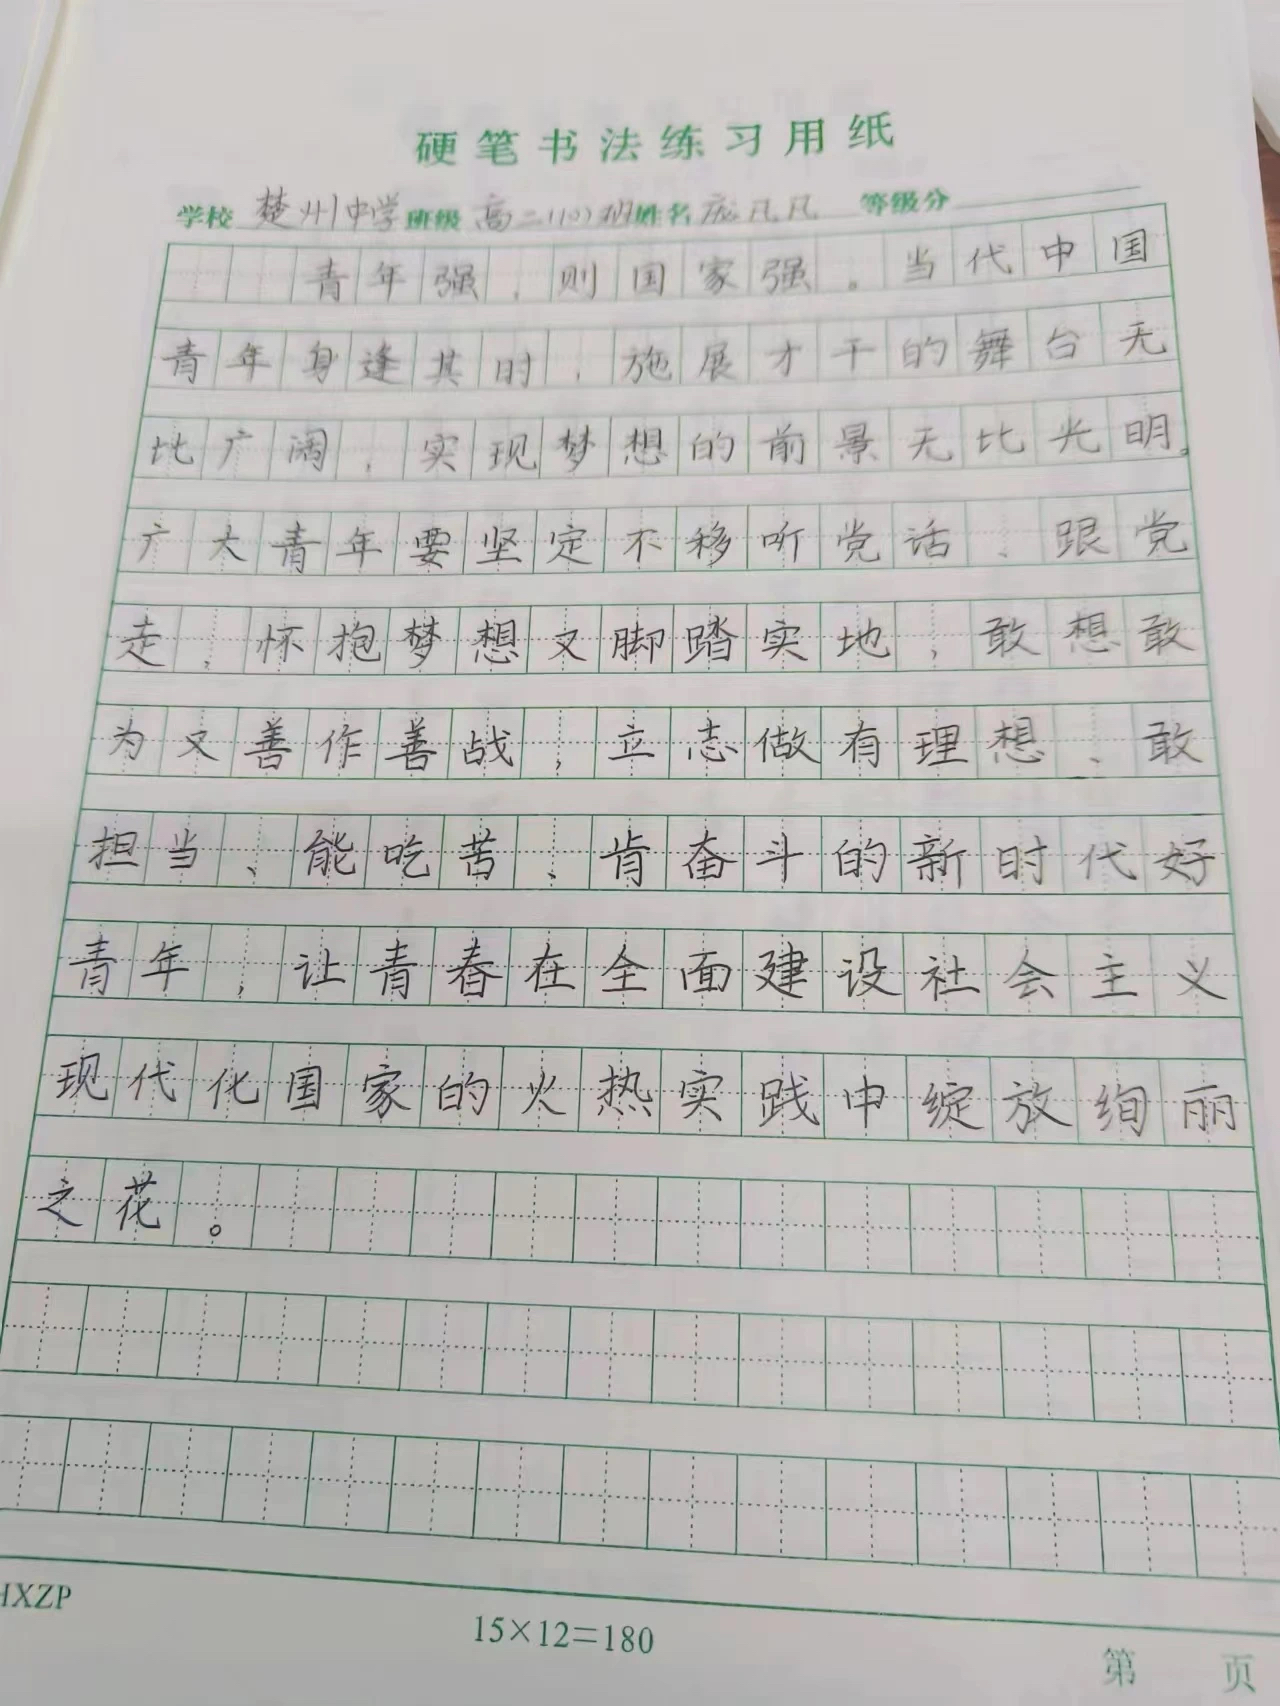 硬笔书法练习用纸
学校 楚州中学 班级 高二(10)班 姓名 庞凡凡 等级分
青年强，则国家强。当代中国
青年身逢其时，施展才干的舞台无
比广阔，实现梦想的前景无比光明。
广大青年要坚定不移听党话、跟党
走，怀抱梦想又脚踏实地，敢想敢
为又善作善战，立志做有理想、敢
担当、能吃苦、肯奋斗的新时代好
青年，让青春在全面建设社会主义
现代化国家的火热实践中绽放绚丽
之花。
HXZP
15×12=180
第 页